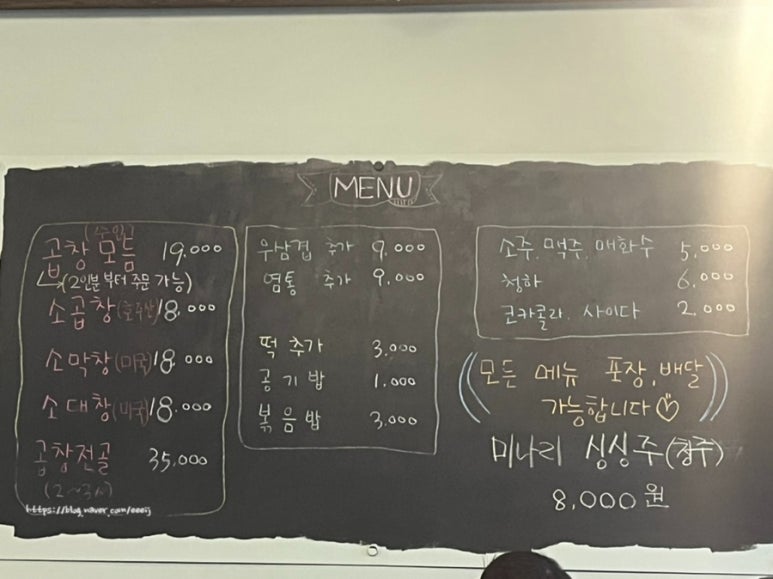 MENU
(수입)
곱창 모듬 19,000
(2인분 부터 주문 가능)
소곱창(호주산) 18,000
소막창(미국) 18,000
소대창(미국) 18,000
곱창전골 35,000
(2~3人)
https://blog.naver.com/eeeij
우삼겹 추가 9,000
염통 추가 9,000
떡 추가 3,000
공기밥 1,000
볶음밥 3,000
소주, 맥주, 매화수 5,000
청하 6,000
코카콜라, 사이다 2,000
모든 메뉴 포장, 배달
가능합니다
미나리 싱싱주(청주)
8,000원